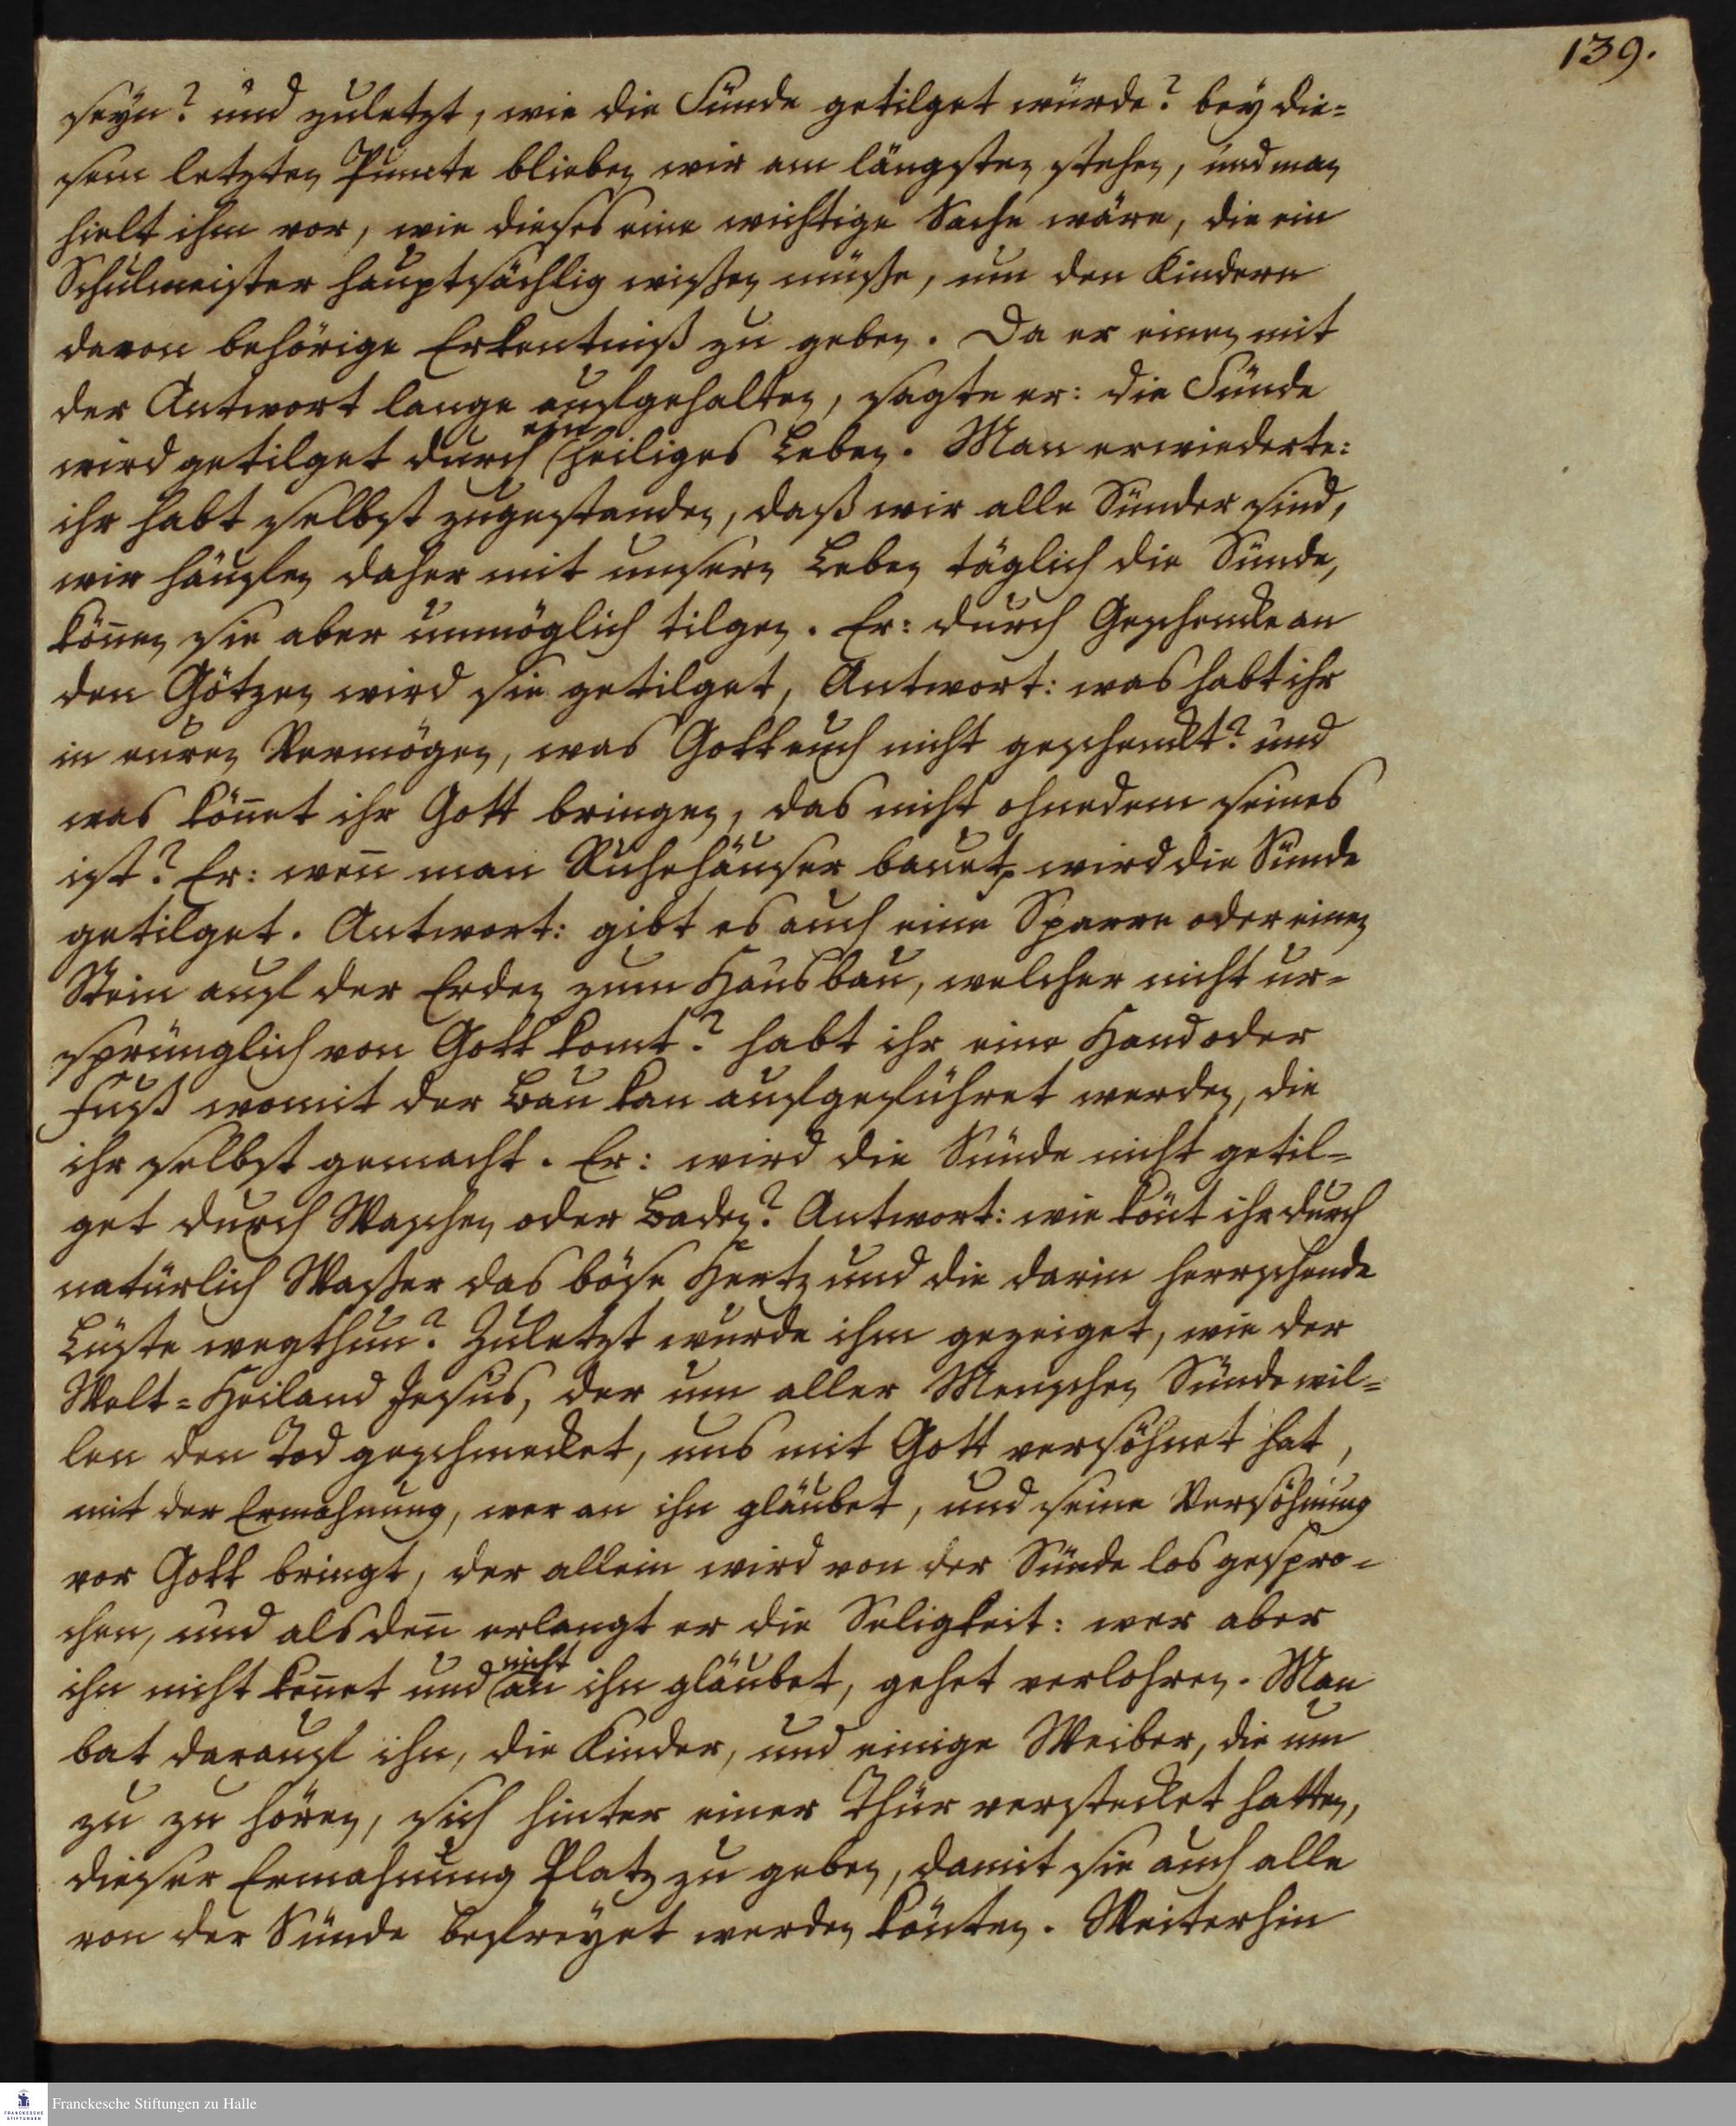 139.
seyn? und zuletzt, wie die Sünde getilget würde? bey die-
sem letzten Puncte blieben wir am längsten stehen, und man
hielt ihm vor, wie dieses eine wichtige Sache wäre, die ein
Schulmeister hauptsächlig wißen müße, um den Kindern
davon behörige Erkentniß zu geben. Da er einen mit
der Antwort lange aufgehalten, sagte er: die Sünde
wird getilget durch ein heiliges Leben. Man erwiederte:
ihr habt selbst zugestanden, daß wir alle Sünder sind,
wir häufen daher mit unsern Leben täglich die Sünde,
kön̄en sie aber unmöglich tilgen. Er: durch Geschencke an
den Götzen wird sie getilget, Antwort: was habt ihr
in euren Vermögen, was Gott euch nicht geschenckt? und
was kön̄et ihr Gott bringen, das nicht ohnedem seines
ist? Er: wen̄ man Ruhehäuser bauet, wird die Sünde
getilget. Antwort: gibt es auch eine Sparre oder einen
Stein auf der Erden zum Hausbau, welcher nicht ur-
sprünglich von Gott komt? habt ihr eine Hand oder
Fuß womit der Bau kan aufgeführet werden, die
ihr selbst gemacht. Er: wird die Sünde nicht getil-
get durch Waschen oder Baden? Antwort: wie kön̄t ihr durch
natürlich Waßer das böse Hertz und die darin herrschende
Lüste wegthun? Zuletzt wurde ihm gezeiget, wie der
Welt-Heiland Jesus, der um aller Menschen Sünde wil-
len den Tod geschmecket, uns mit Gott versöhnet hat,
mit der Ermahnung, wer an ihn gläubet, und seine Versöhnung
vor Gott bringt, der allein wird von der Sünde los gespro-
chen, und als den̄ erlangt er die Seligkeit: wer aber
ihn nicht ken̄et und nicht an ihn gläubet, gehet verlohren. Man
bat darauf ihn, die Kinder, und einige Weiber, die um
zu zu hören, sich hinter einer Thür verstecket hatten,
dieser Ermahnung Platz zu geben, damit sie auch alle
von der Sünde befreyet werden könten. Weiterhin
Franckesche Stiftungen zu Halle
FRANCKESCHE
STIFTUNGEN